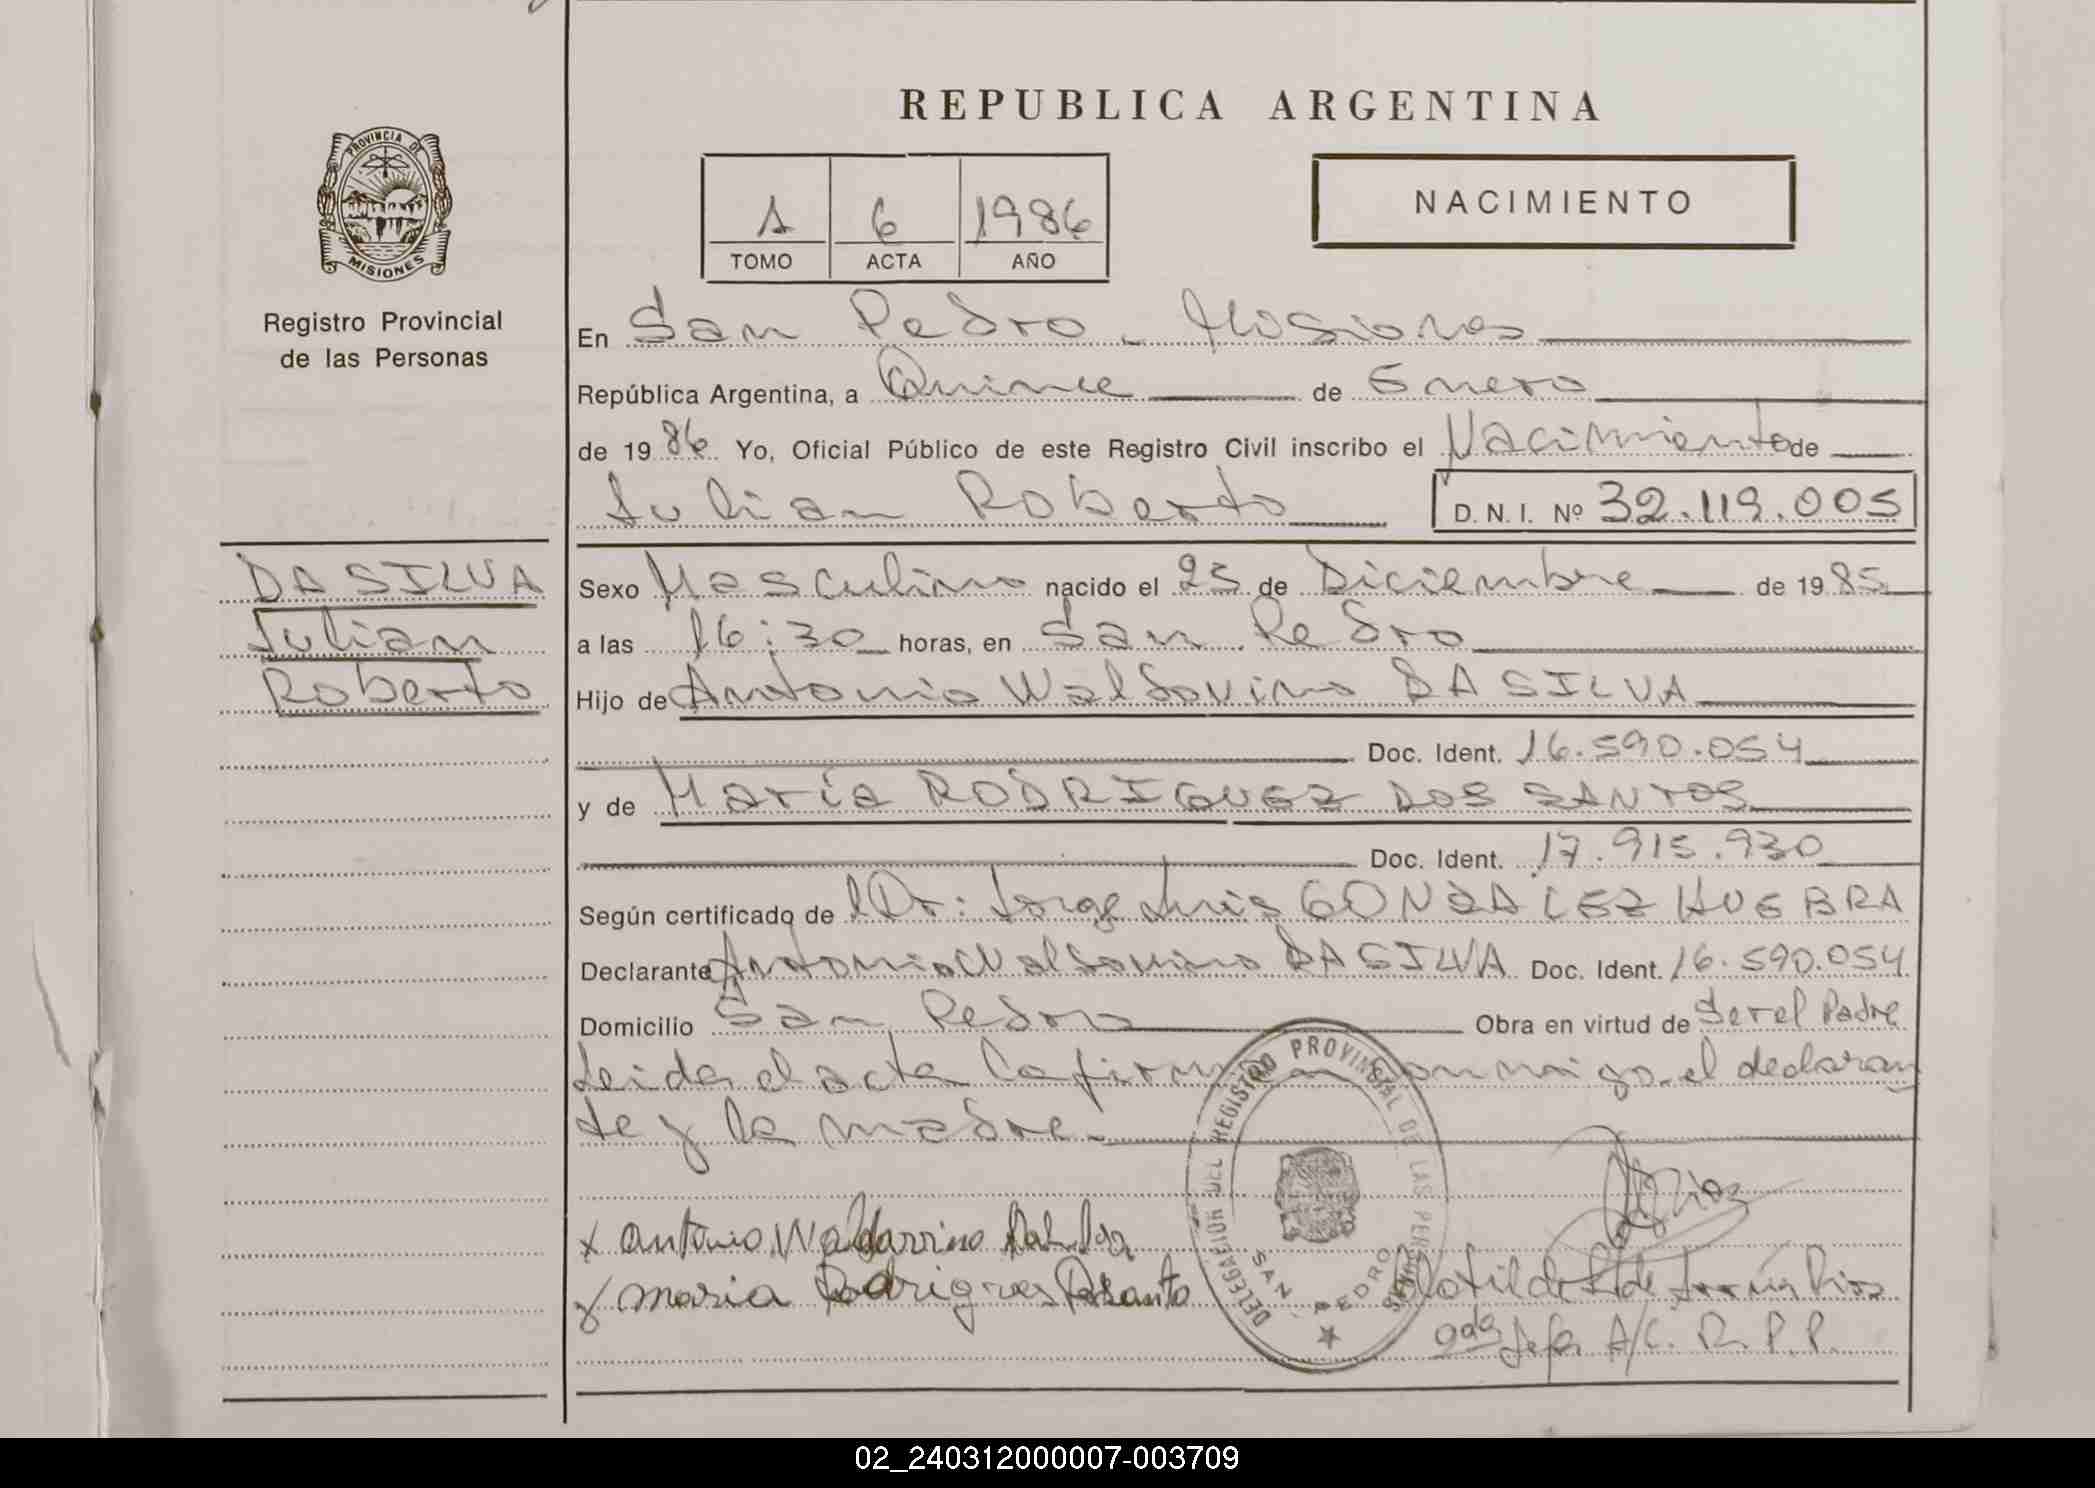 REPUBLICA ARGENTINA
PROVINCIA DE
MISIONES
Registro Provincial
de las Personas
1 6 1986
TOMO ACTA AÑO
NACIMIENTO
En San Pedro - Misiones
República Argentina, a Quince de Enero
de 1986 Yo, Oficial Público de este Registro Civil inscribo el Nacimiento de
Julian Roberto D. N. I. Nº 32.119.005
DA SILVA
Julian
Roberto
Sexo Masculino nacido el 25 de Diciembre de 1985
a las 16:30 horas, en San Pedro
Hijo de Antonio Waldovino DA SILVA
Doc. Ident. 16.590.054
y de María RODRIGUEZ DOS SANTOS
Doc. Ident. 17.915.930
Según certificado de Dr: Jorge Luis GONZALEZ HUEBRA
Declarante Antonio Waldovino DA SILVA Doc. Ident. 16.590.054
Domicilio San Pedro Obra en virtud de Ser el Padre
Leida el acta La firman conmigo el declaran
te y la madre.
x Antonio
y Maria
DELEGACION DEL REGISTRO PROVINCIAL DE LAS PERSONAS
SAN PEDRO
Jefa A/C. R. P. P.
02_240312000007-003709